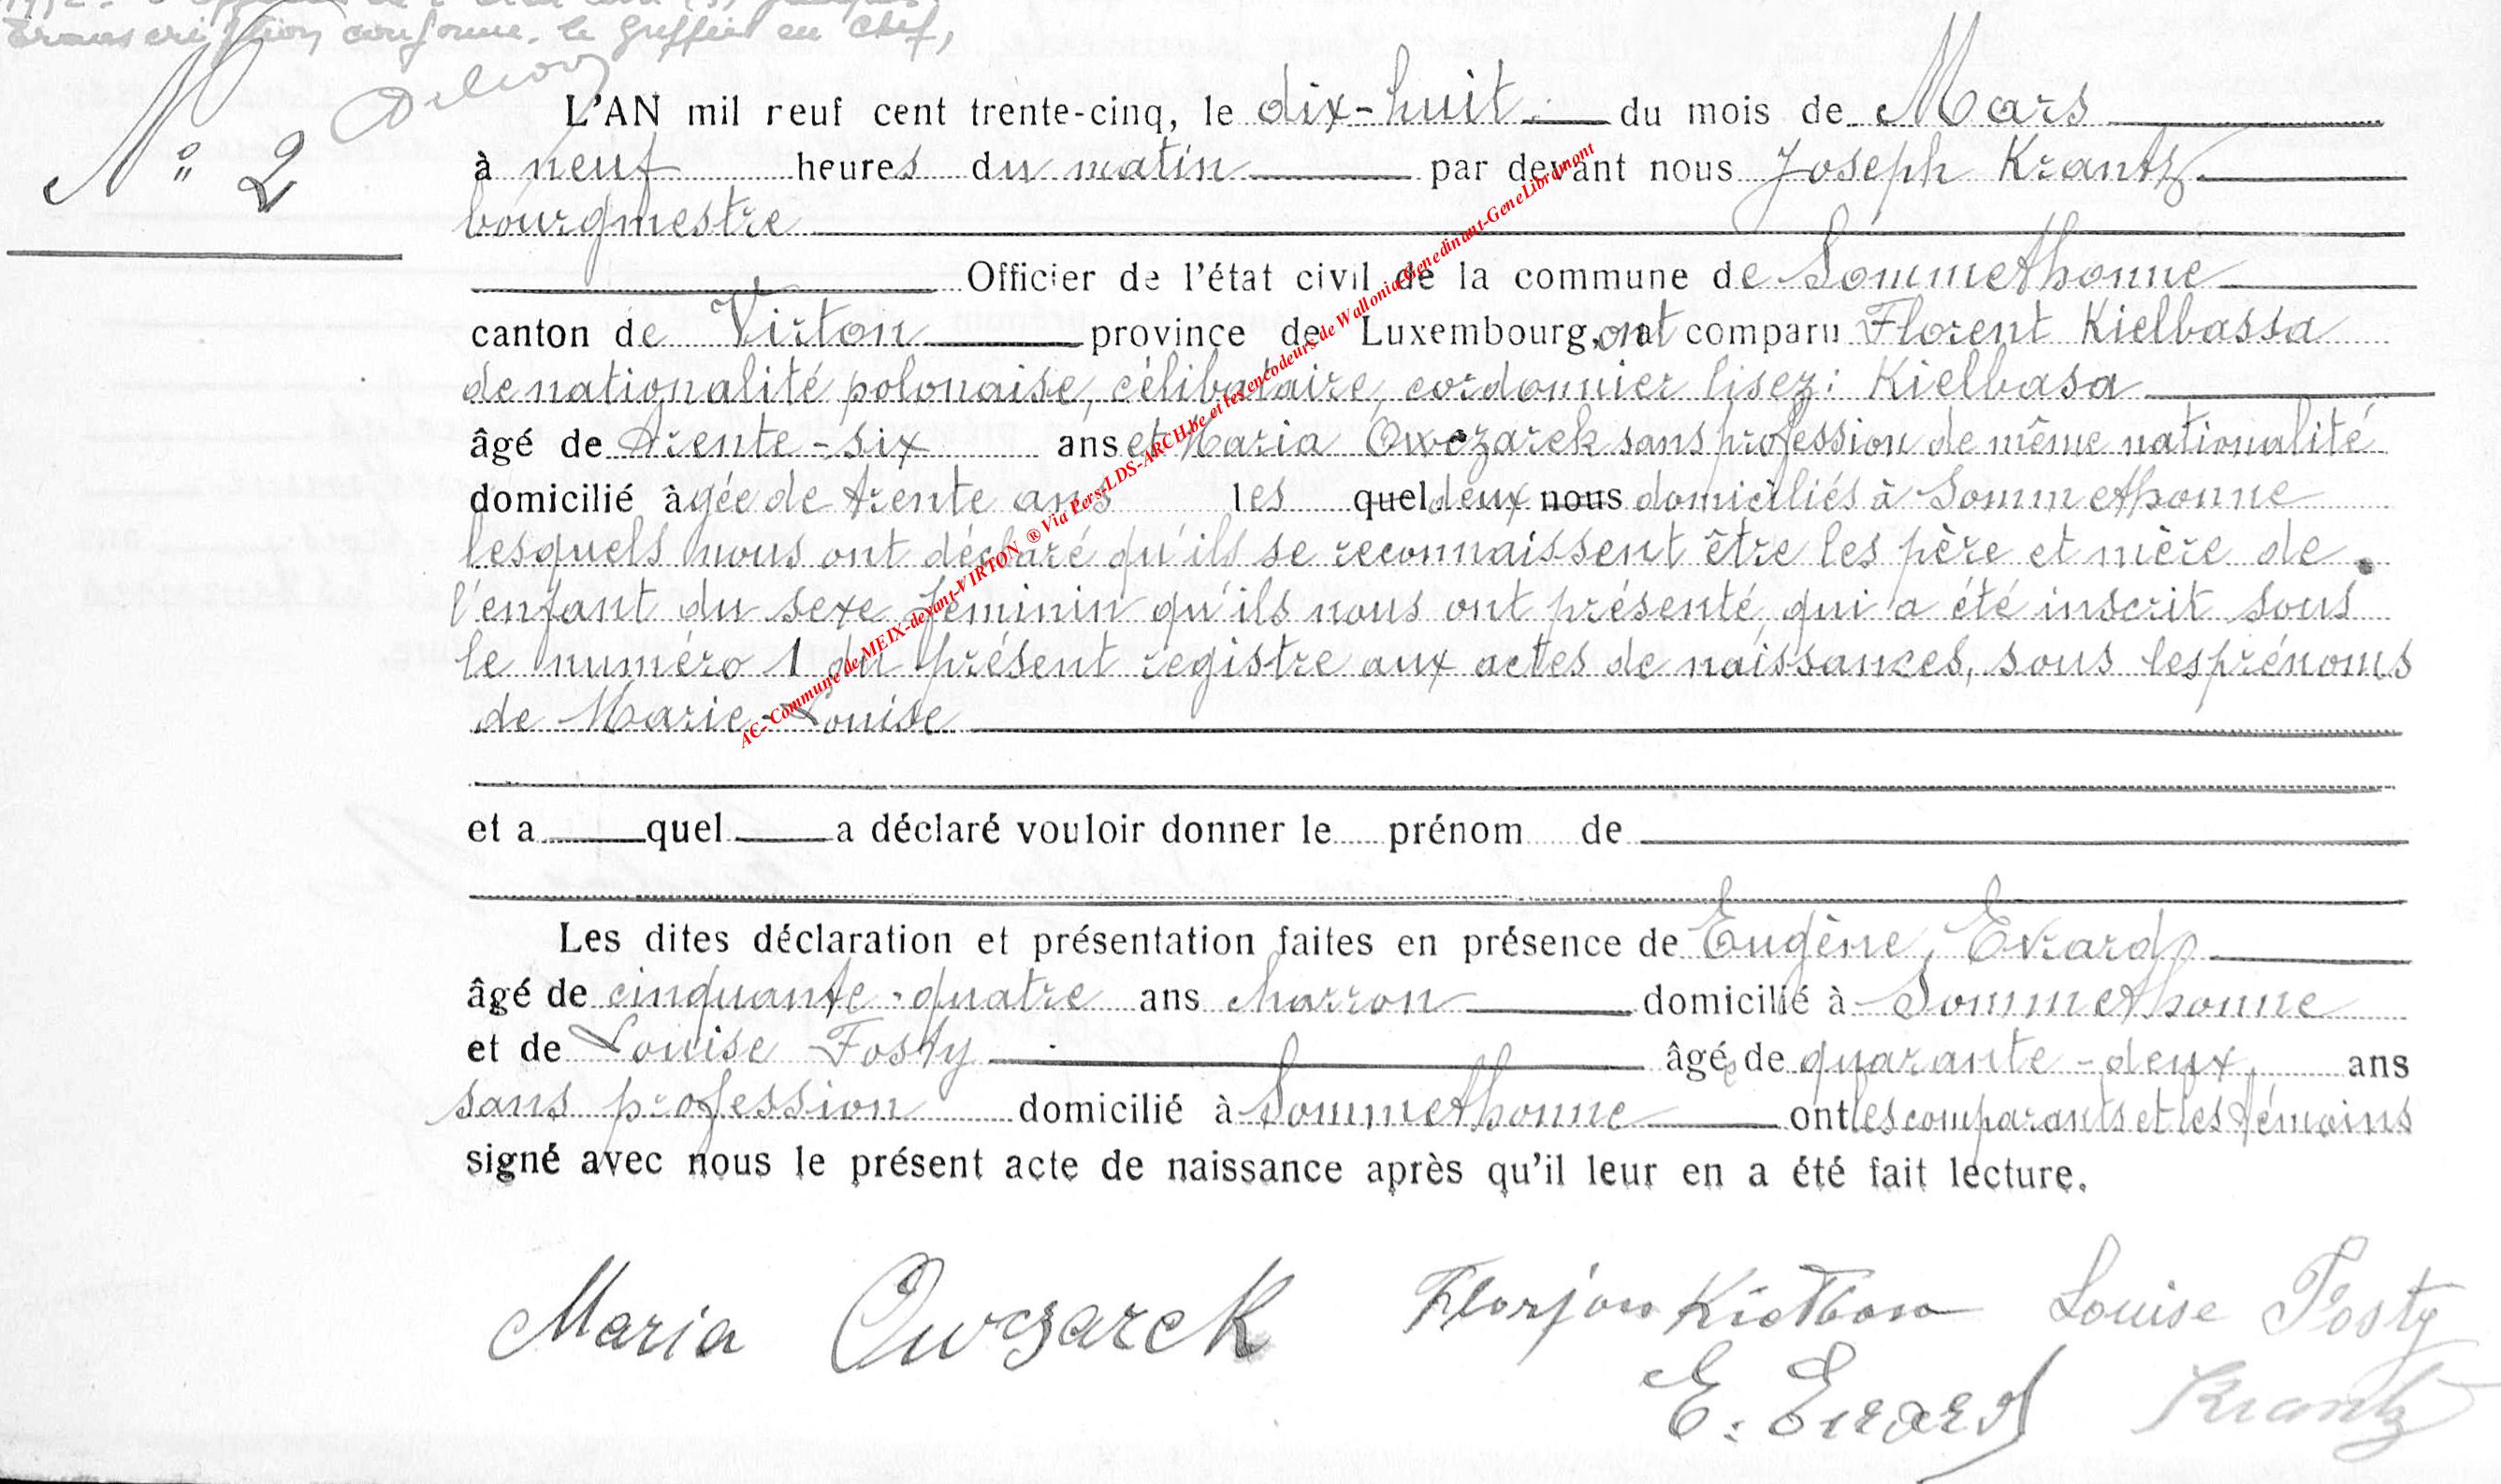 Transcription conforme. le Greffier en Chef,
N° 2
L'AN mil neuf cent trente-cinq, le dix-huit du mois de Mars
à neuf heures du matin par devant nous Joseph Krantz
bourgmestre
Officier de l'état civil de la commune de Sommethonne
canton de Virton province de Luxembourg, ont comparu Florent Kielbassa
de nationalité polonaise, célibataire, cordonnier lisez: Kielbasa
âgé de trente-six ans et Maria Owczarek sans profession de même nationalité
domicilié âgée de trente ans les quel deux nous domiciliés à Sommethonne
lesquels nous ont déclaré qu'ils se reconnaissent être les père et mère de
l'enfant du sexe féminin qu'ils nous ont présenté, qui a été inscrit sous
le numéro 1 du présent registre aux actes de naissances, sous les prénoms
de Marie-Louise
et a quel a déclaré vouloir donner le prénom de
Les dites déclaration et présentation faites en présence de Eugène, Evrard
âgé de cinquante-quatre ans charron domicilié à Sommethonne
et de Louise Fosty âgée de quarante-deux ans
sans profession domicilié à Sommethonne ont les comparants et les témoins
signé avec nous le présent acte de naissance après qu'il leur en a été fait lecture.
Maria Owczarek Florjan Kiełbasa Louise Fosty
E. Evrard Krantz
AC- Commune de MEIX-devant-VIRTON ® Via Pers-LDS-ARCH.be et les encodeurs de Wallonia-Genedinant-GeneLibramont